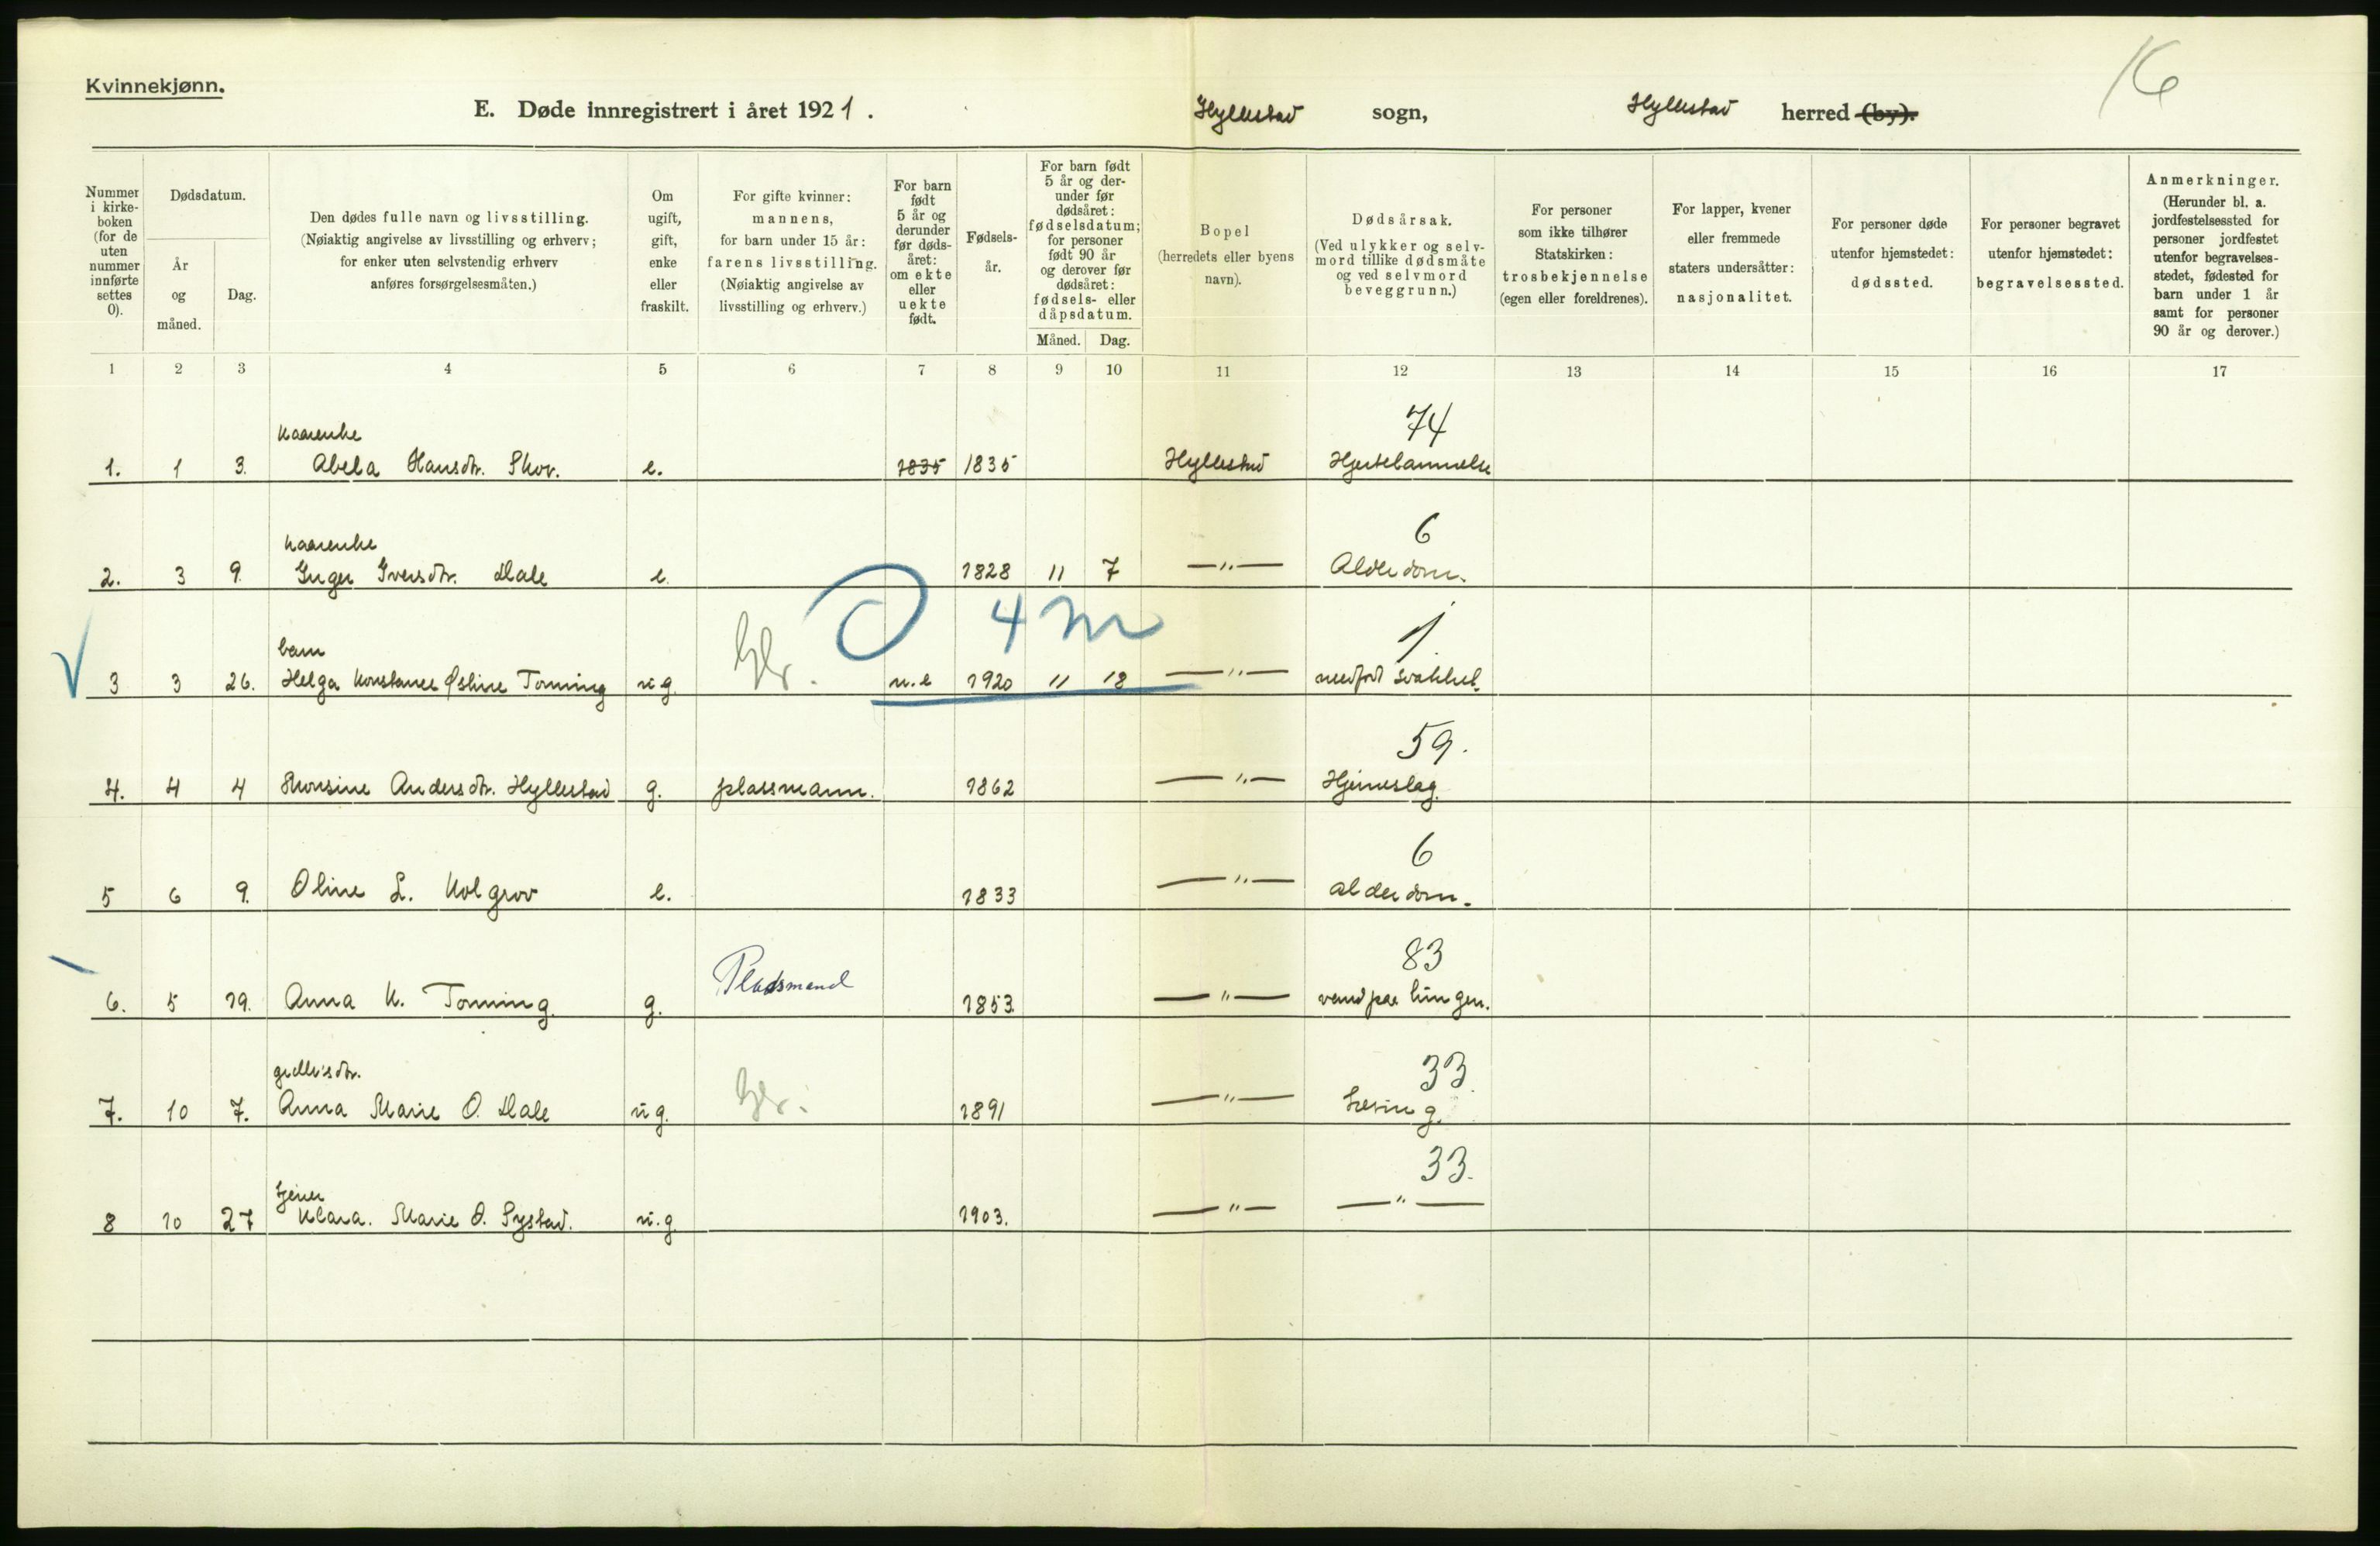 Kvinnekjønn.
16
E. Døde innregistrert i året 1921.
Hyllestad sogn, Hyllestad herred (by).
Nummer i kirkeboken (for de uten nummer innførte settes 0).
Dødsdatum.
År og måned.
Dag.
Den dødes fulle navn og livsstilling. (Nøiaktig angivelse av livsstilling og erhverv; for enker uten selvstendig erhverv anføres forsørgelsesmåten.)
Om ugift, gift, enke eller fraskilt.
For gifte kvinner: mannens, for barn under 15 år: farens livsstilling. (Nøiaktig angivelse av livsstilling og erhverv.)
For barn født 5 år og derunder før dødsåret: om ekte eller uekte født.
Fødselsår.
For barn født 5 år og derunder før dødsåret: fødselsdatum; for personer født 90 år og derover før dødsåret: fødsels- eller dåpsdatum.
Måned. Dag.
Bopel (herredets eller byens navn).
Dødsårsak. (Ved ulykker og selvmord tillike dødsmåte og ved selvmord beveggrunn.)
For personer som ikke tilhører Statskirken: trosbekjennelse (egen eller foreldrenes).
For lapper, kvener eller fremmede staters undersåtter: nasjonalitet.
For personer døde utenfor hjemstedet: dødssted.
For personer begravet utenfor hjemstedet: begravelsessted.
Anmerkninger. (Herunder bl. a. jordfestelsessted for personer jordfestet utenfor begravelsesstedet, fødested for barn under 1 år samt for personer 90 år og derover.)
1 2 3 4 5 6 7 8 9 10 11 12 13 14 15 16 17
Kaarenke 74
1. 1 3. Abela Hansdtr. Skor. e. 1835 1835 Hyllestad Hjertelammelse
Kaarenke 6
2. 3 9. Inger Iversdtr. Dale e. 1828 11 7 —"— Alderdom.
barn 4 m 1
3 3 26. Helga Konstance Østine Tonning ug. u.e 1920 11 18 —"— medfødt svakhet.
59.
4. 4 4 Andersdtr. Hyllestad g. plassmann. 1862 —"— Hjerneslag.
6
5 6 9. Oline L. Kolgrov e. 1833 —"— alderdom.
83
6. 5 19. Anna K. Tonning. g. Pladsmand 1853. —"— vand paa lungen.
33
7. 10 7. Anna Marie O. Dale ug. 1891 —"— tæring.
33.
tjener
8 10 27 Klara. Marie O. Systad. u.g 1903. —"— —"—